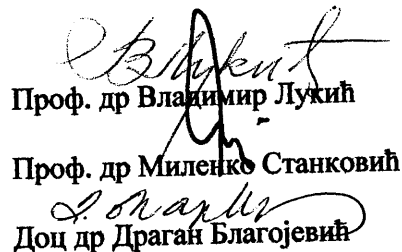 Проф. др Владимир Лукић
Проф. др Миленко Станковић
Доц др Драган Благојевић